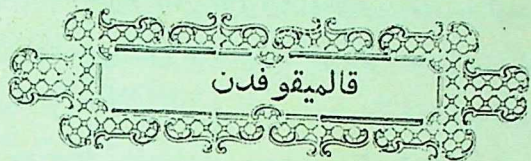 قالميقوفدن